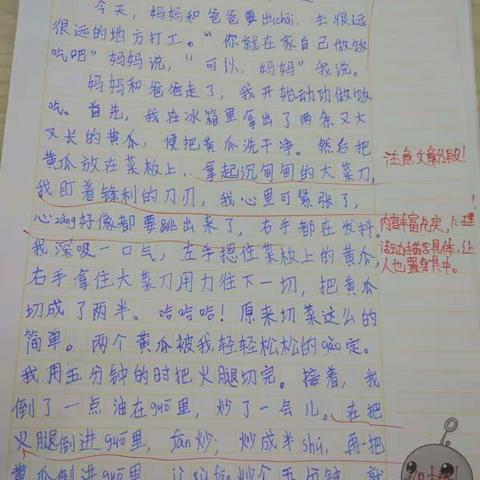 今天，妈妈和爸爸要出chāi，去很
远的地方打工。“你就在家自己做饭
吃吧”妈妈说，“可以，妈妈”我说。
妈妈和爸爸走了，我开始动功做饭
吃。首先，我在冰箱里拿出了两条又大
又长的黄瓜，便把黄瓜洗干净。然后把
黄瓜放在菜板上，拿起沉甸甸的大菜刀，
我盯着锋利的刀刃，我心里可紧张了，
心zàng好像都要跳出来了，右手都在发抖。
我深吸一口气，左手摁住菜板上的黄瓜，
右手拿住大菜刀用力往下一切，把黄瓜
切成了两半。哈哈哈！原来切菜这么的
简单。两个黄瓜被我轻轻松松的gǎo定。
我用五分钟的时把火腿切完。接着，我
倒了一点油在guō里，炒了一会儿。在把
火腿倒进guō里，fān炒，炒成半shú，再把
黄瓜倒进guō里
注意文章分段！
内容丰富充实，心理
活动描写具体，让
人也置身其中。